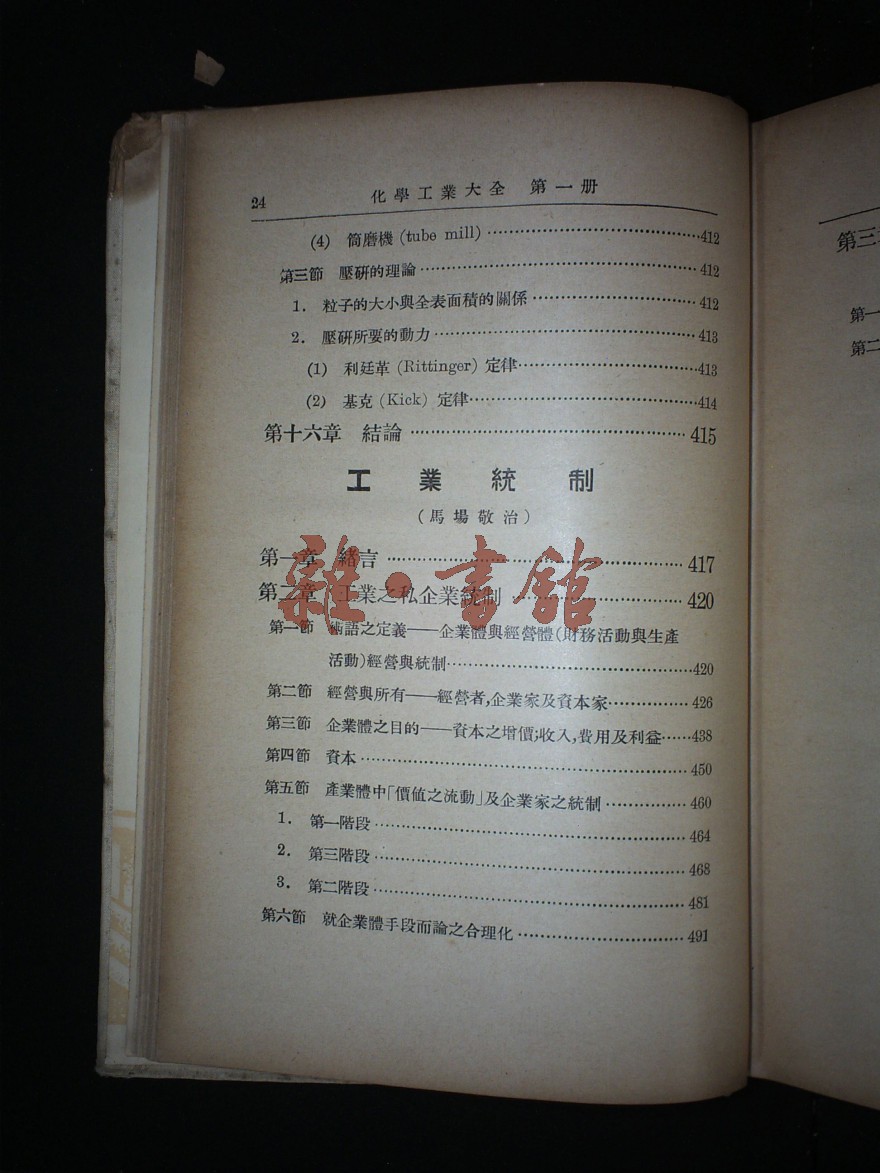 24 化學工業大全 第一册
(4) 筒磨機 (tube mill) ……412
第三節 壓研的理論……412
1. 粒子的大小與全表面積的關係……412
2. 壓研所要的動力……413
(1) 利廷革 (Rittinger) 定律……413
(2) 基克 (Kick) 定律……414
第十六章 結論……415
工業統制
(馬場敬治)
第一章 緒言……417
第二章 工業之私企業統制……420
第一節 術語之定義——企業體與經營體(財務活動與生產
活動)經營與統制……420
第二節 經營與所有——經營者,企業家及資本家……426
第三節 企業體之目的——資本之增價;收入,費用及利益……438
第四節 資本……450
第五節 產業體中「價値之流動」及企業家之統制……460
1. 第一階段……464
2. 第三階段……468
3. 第二階段……481
第六節 就企業體手段而論之合理化……491
雜·書館
第三
第一
第二